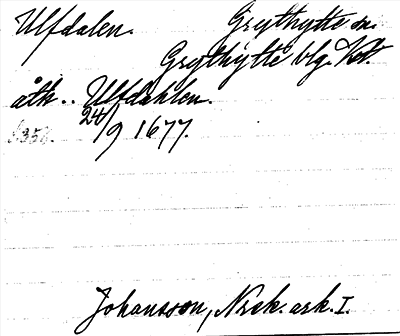 Ulfdalen. Grythytte sn.
Grythytte blg. Vstm.
åtk .. Ulfdahlen.
24/9 1677.
Johansson, Nrck. ark. I.